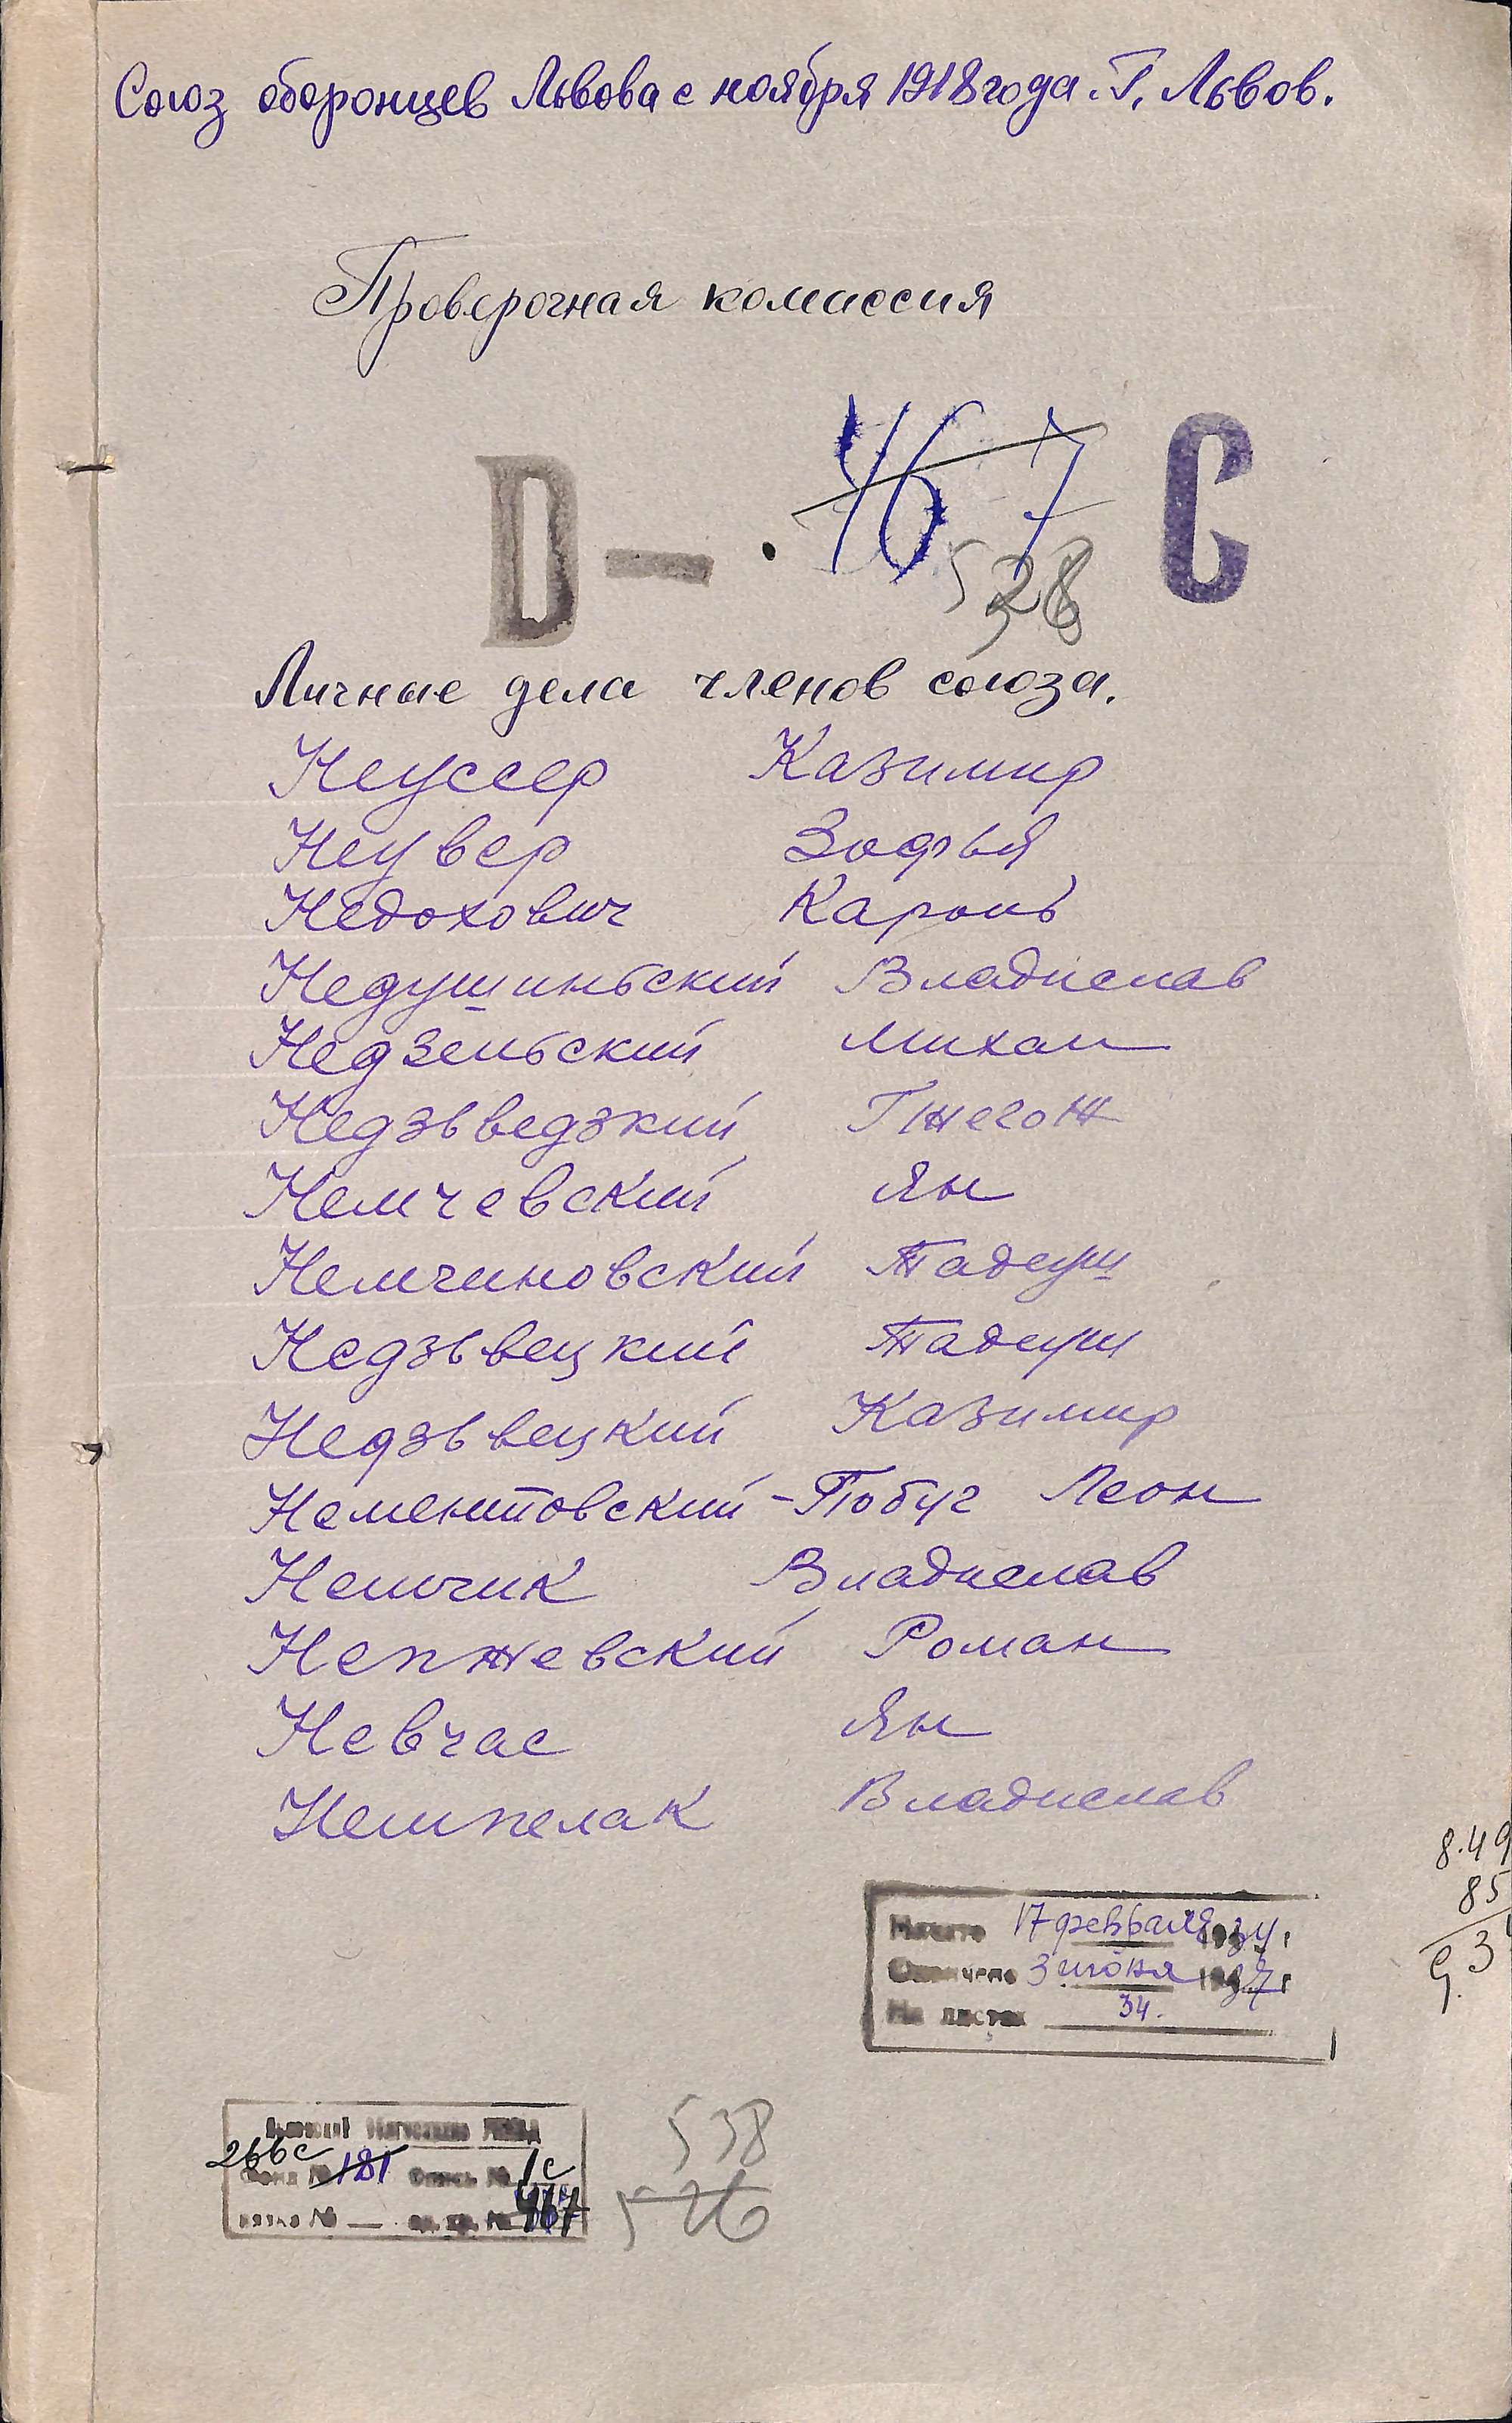 Союз оборонцев Львова с ноября 1918 года. Г. Львов.
Проверочная комиссия
D — . 467 C
538
Личные дела членов союза.
Неуссер Казимир
Неувер Зофья
Недохович Кароль
Недушиньский Владислав
Недзельский Михал
Недзьведзкий Гжегож
Немчевский Ян
Немчиновский Тадеуш
Недзьвецкий Тадеуш
Недзьвецкий Казимир
Нементовский-Побуг Леон
Немчик Владислав
Непжевский Роман
Невчас Ян
Нешпелак Владислав
8.49
85
9.3
Начато 17 февраля 1934 г
Окончено 3 июня 1937 г
На листах 34.
266с
Фонд № 181 Опись № 1с
№ — ед. хр. № 467
538
526